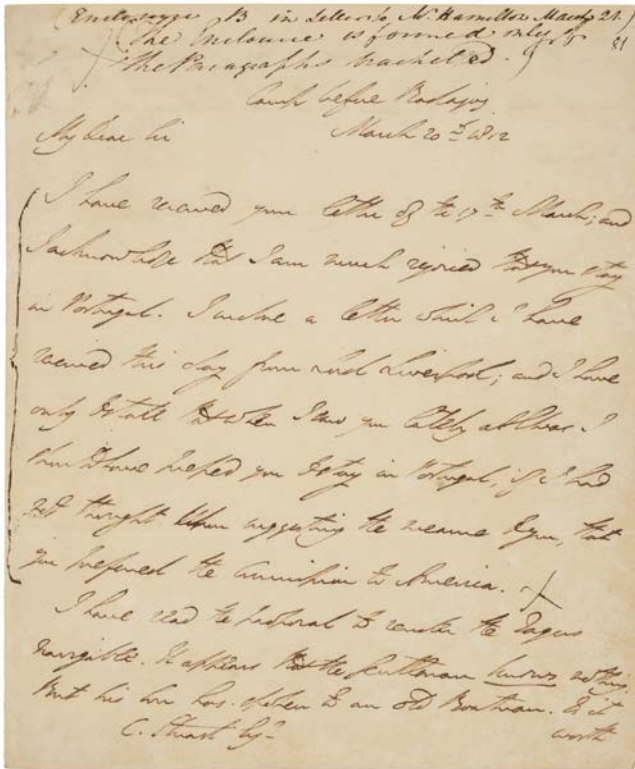 (Enclosure B in letter to Mr Hamilton March 21.)
(The Enclosure is formed only of
the Paragraphs bracketed.)
81
Camp before Badajoz
My dear Sir March 20th 1812
I have received your letter of the 17th March; and
I acknowledge that I am much rejoiced that you stay
in Portugal. I enclose a letter which I have
received this day from Lord Liverpool; and I have
only to state that when I saw you lately at I
should have pressed you to stay in Portugal, if I had
not thought when suggesting the measure to you, that
you preferred the Commission to America.
I have read the proposal to render the Tagus
navigable. It appears that the gentleman knows nothing.
But his son has spoken to an old Boatman. Is it
C. Stuart Esq worth